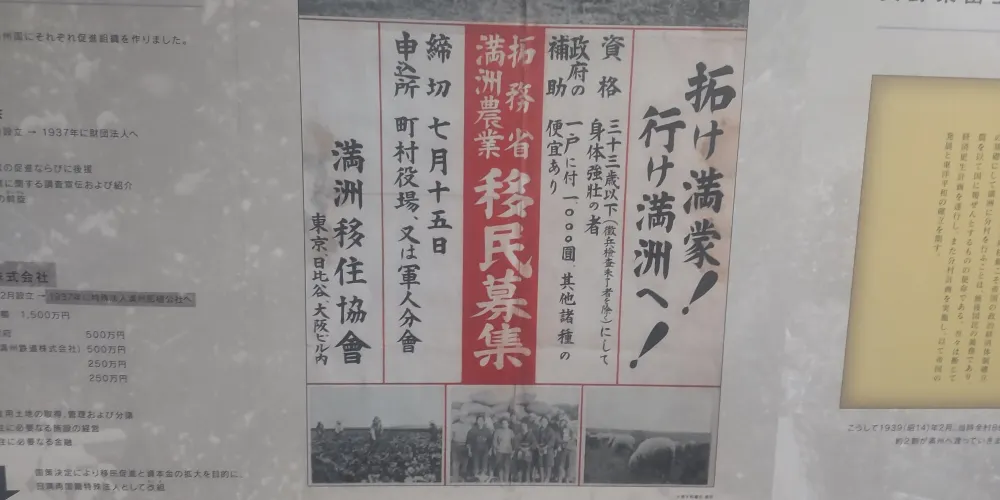 州国にそれぞれ促進組織を作りました。
設立 → 1937年に財団法人へ
の促進ならびに後援
に関する調査宣伝および紹介
の斡旋
株式会社
2月設立 → 1937年に特殊法人満州拓植公社へ
1,500万円
500万円
満州鉄道株式会社) 500万円
250万円
250万円
用土地の取得、管理および分譲
に必要なる施設の経営
に必要なる金融
国策決定により移民促進と資本金の拡大を目的に、
日満両国籍特殊法人として改組
拓け満蒙!
行け満洲へ!
資格 三十三歳以下(徴兵検査未了者を除く)にして
身体強壮の者
政府の補助 一戸に付 一〇〇〇圓、其他諸種の
便宜あり
拓務省
満洲農業
移民募集
締切 七月十五日
申込所 町村役場、又は軍人分會
満洲移住協會
東京、日比谷、大阪ビル内
経済更生計画を遂行し、また分村計画を実施し、以て帝国の
発展と東洋平和の確立を期す。
こうして1939(昭14)年2月、